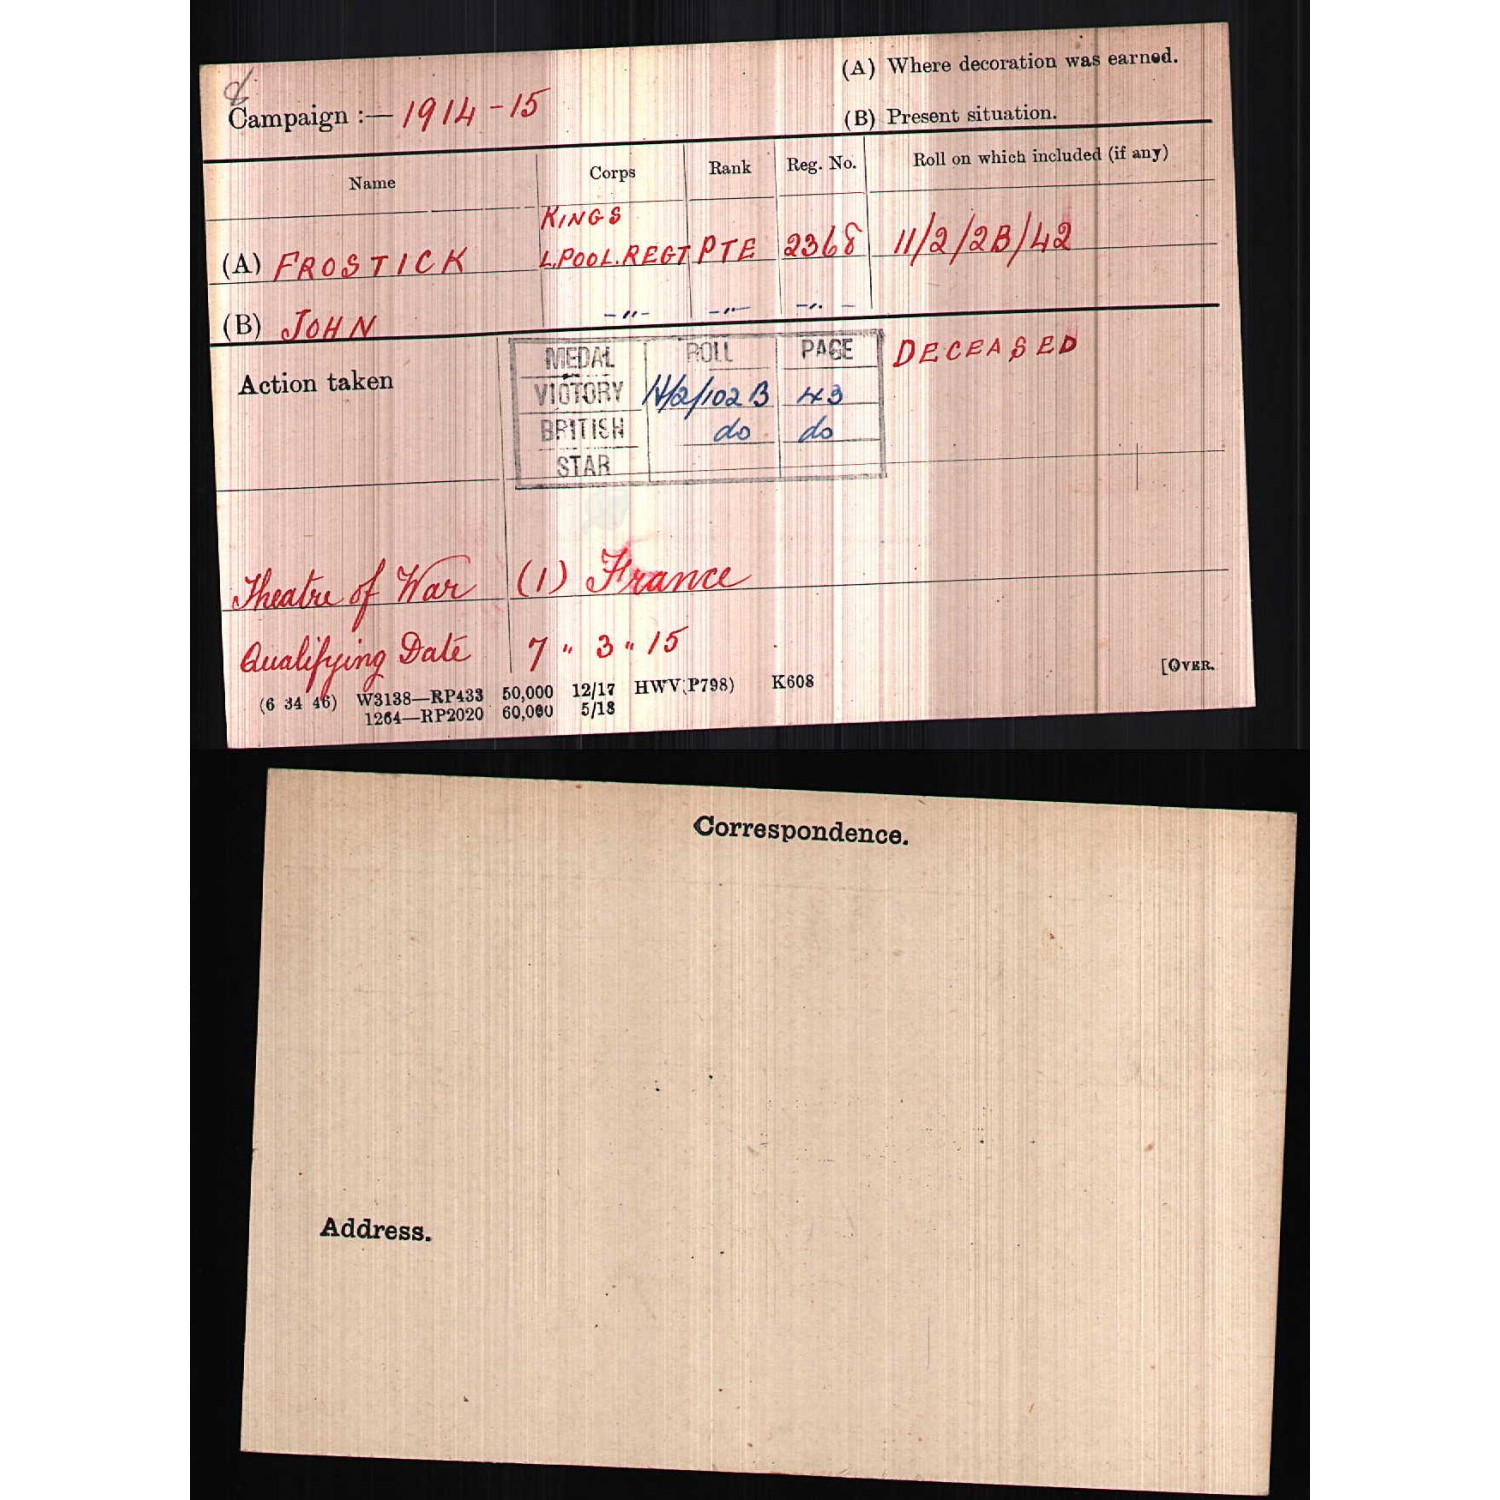 (A) Where decoration was earned.
Campaign :— 1914-15
(B) Present situation.
Name Corps Rank Reg. No. Roll on which included (if any)
KINGS
(A) FROSTICK L.POOL.REGT PTE 2368 11/2/2B/42
(B) JOHN -"- -"- -"-
Action taken
MEDAL ROLL PAGE DECEASED
VICTORY H/2/102 B 43
BRITISH do do
STAR
Theatre of War (1) France
Qualifying Date 7 " 3 " 15
[OVER.
(6 34 46) W3138—RP433 50,000 12/17 HWV(P798) K608
1264—RP2020 60,000 5/18
Correspondence.
Address.